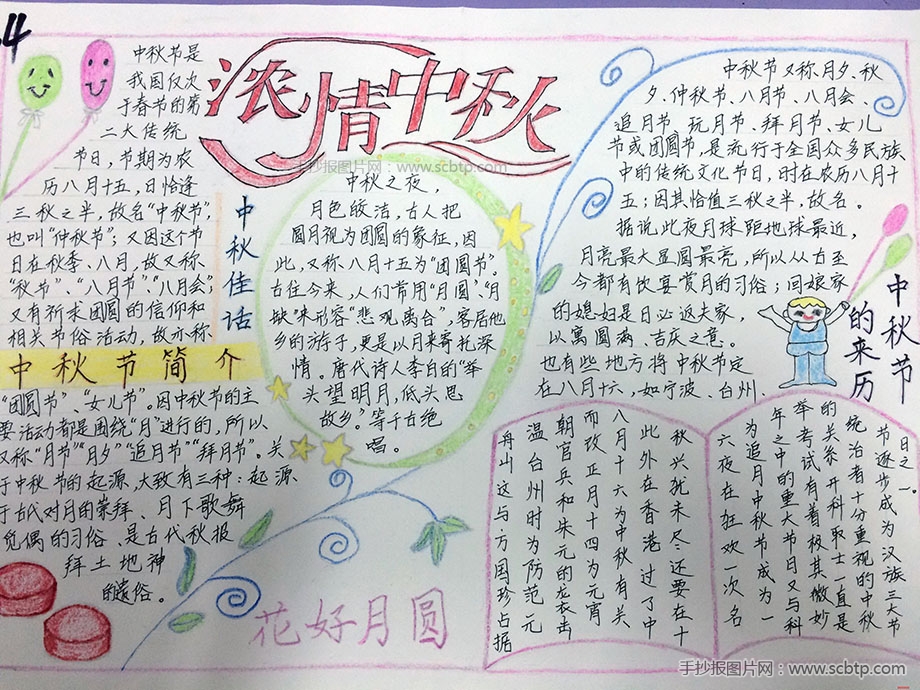 4
浓情中秋
中秋节是
我国仅次
于春节的第
二大传统
节日，节期为农
历八月十五，日恰逢
三秋之半，故名“中秋节”，
也叫“仲秋节”；又因这个节
日在秋季、八月，故又称
“秋节”、“八月节”、“八月会”；
又有祈求团圆的信仰和
相关节俗活动，故亦称
中秋节简介
“团圆节”、“女儿节”。因中秋节的主
要活动都是围绕“月”进行的，所以
又称“月节”“月夕”“追月节”“拜月节”。关
于中秋节的起源，大致有三种：起源
于古代对月的崇拜、月下歌舞
觅偶的习俗、是古代秋报
拜土地神
的遗俗。
中秋佳话
中秋之夜，
月色皎洁，古人把
圆月视为团圆的象征，因
此，又称八月十五为“团圆节”。
古往今来，人们常用“月圆”、“月
缺”来形容“悲观离合”，客居他
乡的游子，更是以月来寄托深
情。唐代诗人李白的“举
头望明月，低头思
故乡”。等千古绝
唱。
中秋节又称月夕、秋
夕、仲秋节、八月节、八月会、
追月节、玩月节、拜月节、女儿
节或团圆节，是流行于全国众多民族
中的传统文化节日，时在农历八月十
五；因其恰值三秋之半，故名。
据说此夜月球距地球最近，
月亮最大最圆最亮，所以从古至
今都有饮宴赏月的习俗；回娘家
的媳妇是日必返夫家，
以寓圆满、吉庆之意。
也有些地方将中秋节定
在八月十六，如宁波、台州、
中秋节
的来历
舟山这与方国珍占据
温台州时为防范元
朝官兵和朱元的龙衣击
而改正月十四为元宵
八月十六为中秋有关
此外在香港过了中
秋兴犹未尽还要在十
六夜在狂欢一次名
为追月中秋节成为一
年之中的重大节日又与科
举考试有着极其微妙
的关系开科取士一直是
统治者十分重视的中秋
节逐步成为汉族三大节
日之一。
花好月圆
手抄报图片网 · www.scbtp.com
手抄报图片网：www.scbtp.com